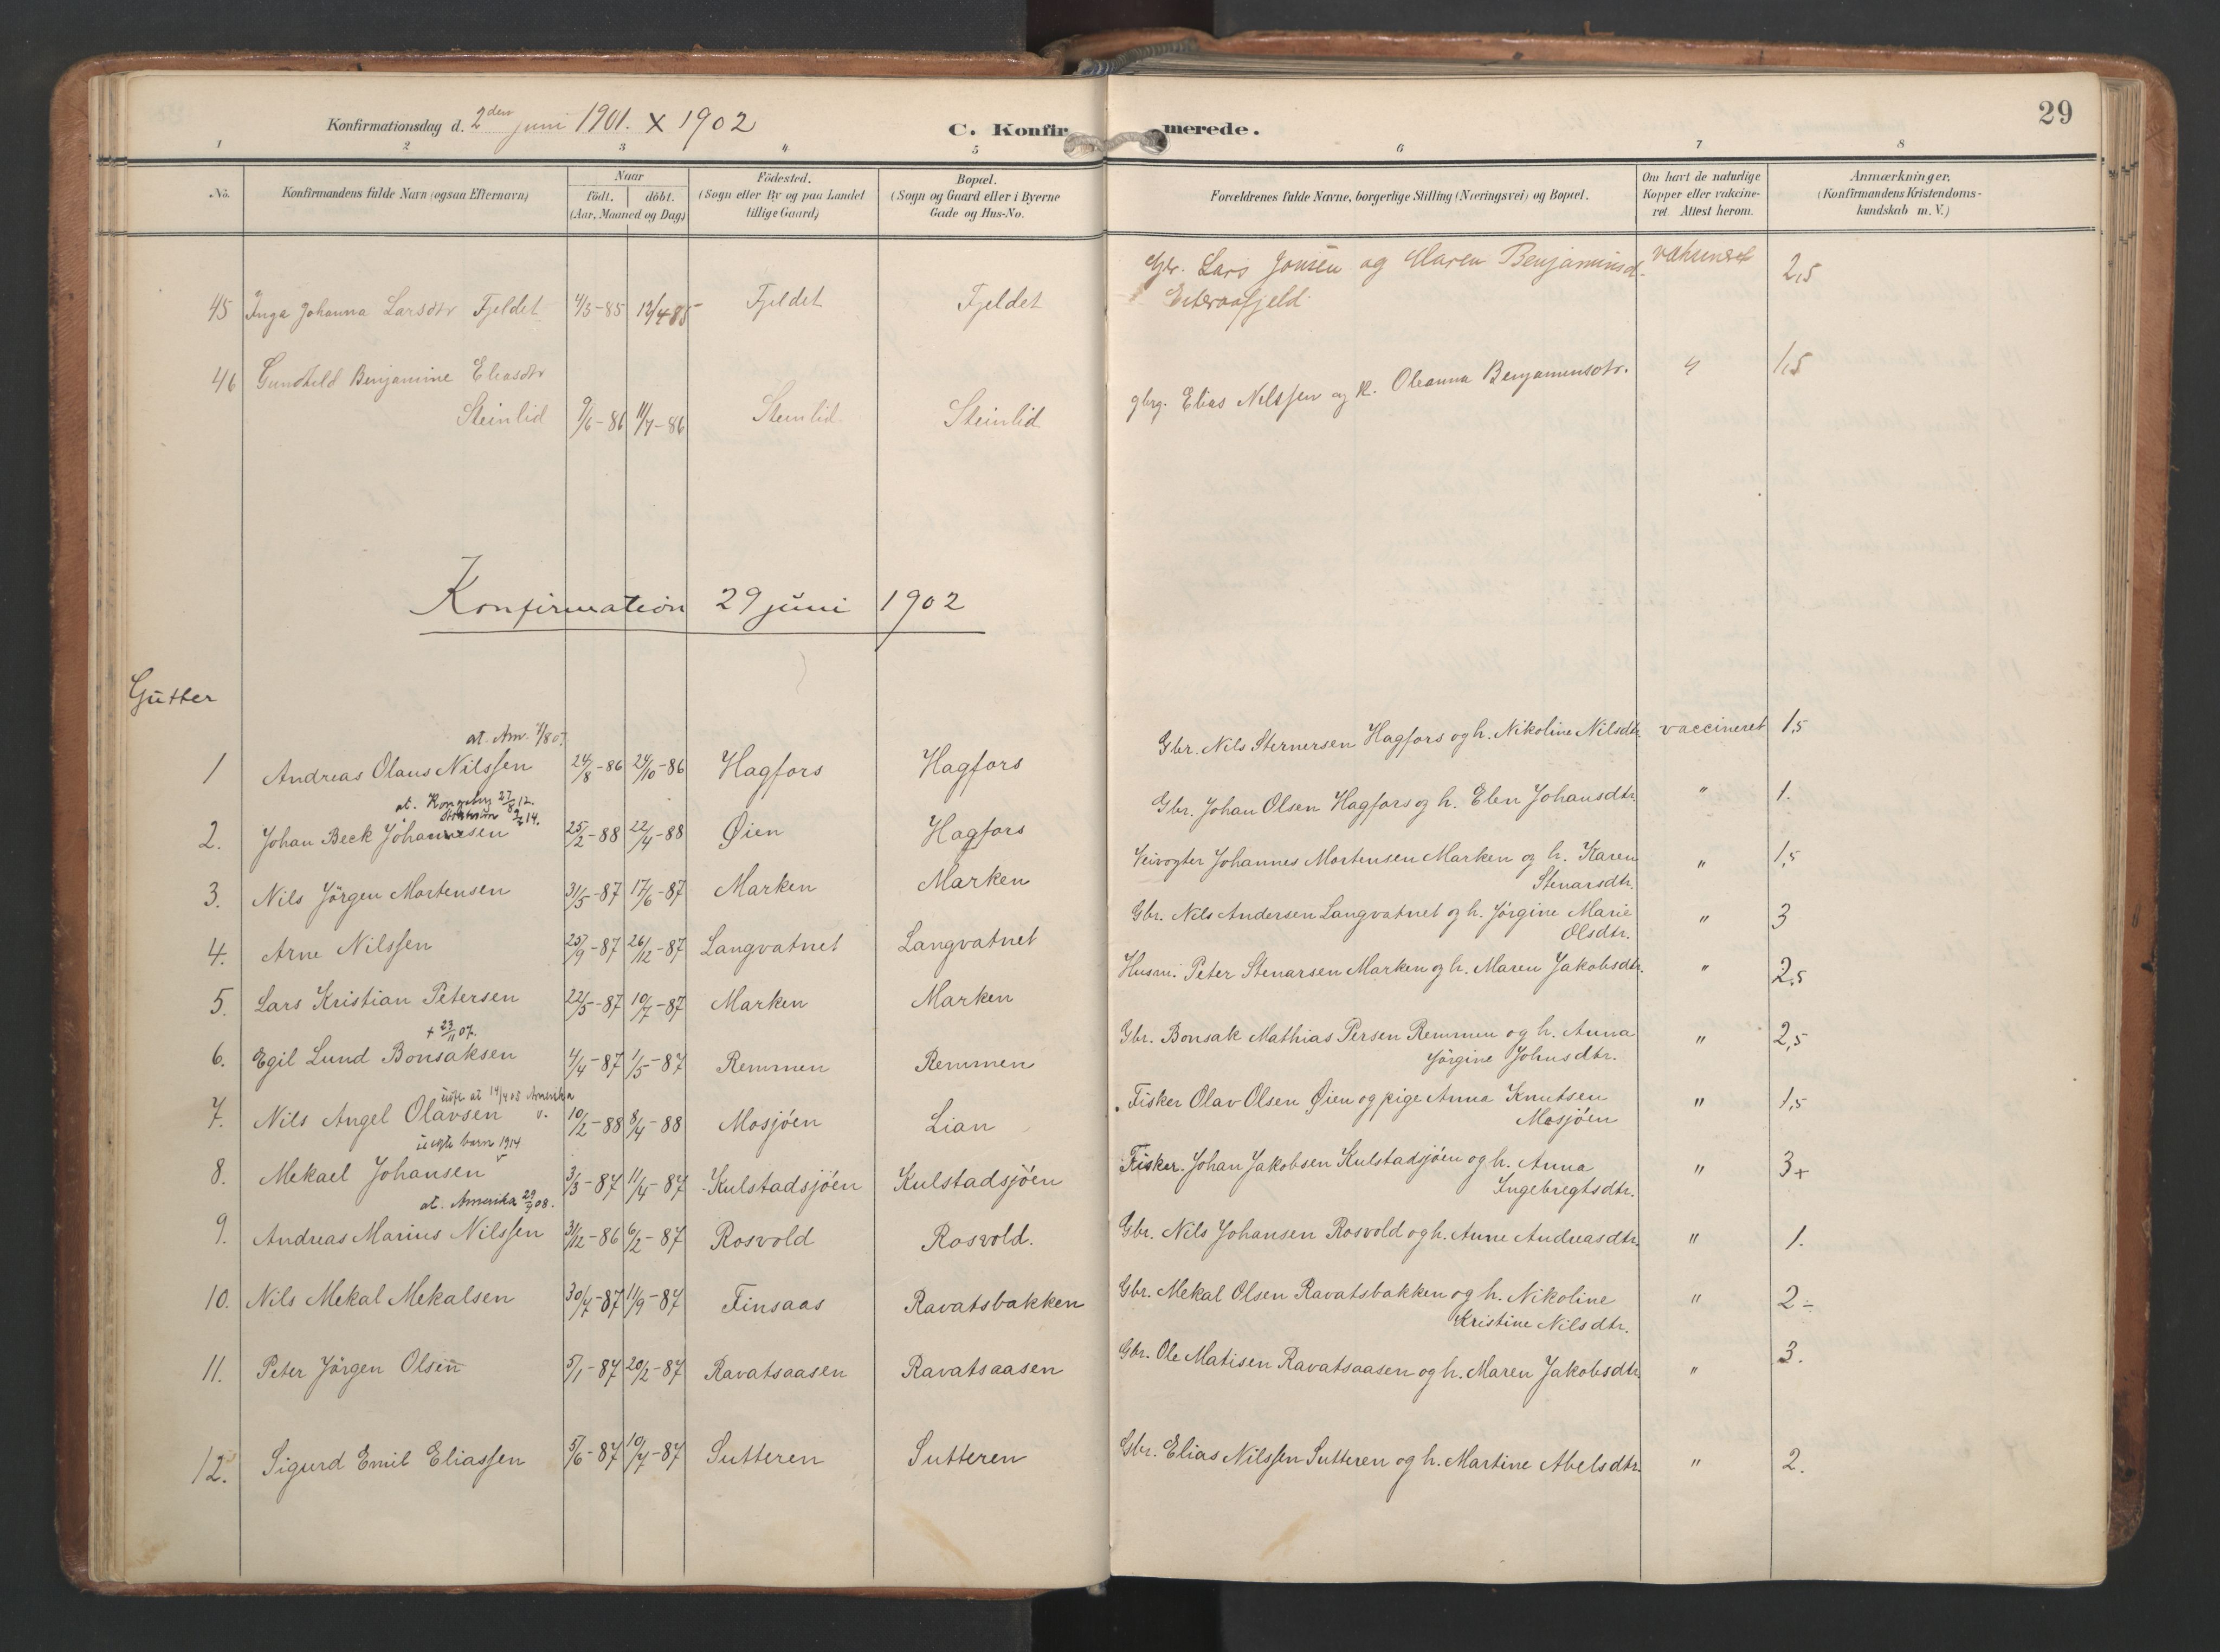 Konfirmationsdag d. 2den juni 1901. x 1902
C. Konfirmerede.
29
1 2 3 4 5 6 7 8
No.
Konfirmandens fulde Navn (ogsaa Efternavn)
Naar
födt. döbt.
(Aar, Maaned og Dag)
Födested.
(Sogn eller By og paa Landet
tillige Gaard)
Bopæl.
(Sogn og Gaard eller i Byerne
Gade og Hus-No.
Forældrenes fulde Navne, borgerlige Stilling (Næringsvei) og Bopæl.
Om havt de naturlige
Kopper eller vakcine-
ret Attest herom.
Anmærkninger.
(Konfirmandens Kristendoms-
kundskab m. V.)
45 Inga Johanna Larsdtr Fjeldet 4/3-85 12/4-85 Fjeldet Fjeldet Gbr. Lars Jonsen og Maren Benjaminsd. 2,5
46 Gundhild Benjamine Eliasdtr
Steinlid 9/6-86 11/7-86 Steinlid Steinlid gbrg. Elias Nilssen og k. Oleanna Benjaminsdtr. " 1,5
Konfirmation 29 juni 1902
Gutter
at. Am.
1 Andreas Olaus Nilssen 24/8-86 24/10-86 Hagfors Hagfors Gbr. Nils Sternersen Hagfors og h. Nikoline Nilsdtr. vaccineret 1,5
at. Kongsberg 27/8 12.
2. Johan Beck Johansen 25/2-88 22/4-88 Øien Hagfors Gbr. Johan Olsen Hagfors og h. Elen Johansdtr. " 1.
3. Nils Jörgen Mortensen 31/5-87 17/6-87 Marken Marken Veivogter Johannes Mortensen Marken og h. Karen
Stenarsdtr. " 1,5
4. Arne Nilssen 25/9-87 26/12-87 Langvatnet Langvatnet Gbr. Nils Andersen Langvatnet og h. Jörgine Marie
Olsdtr. " 3
5. Lars Kristian Petersen 22/5-87 10/7-87 Marken Marken Husm. Peter Stenarsen Marken og h. Maren Jakobsdtr. " 2,5
+ 23/11 07.
6. Egil Lund Bonsaksen 4/4-87 1/5-87 Remmen Remmen Gbr. Bonsak Mathias Persen Remmen og h. Anna
Jörgine Johnsdtr. " 2,5
at 14/4 05 Amerika
7. Nils Angel Olavsen 10/2-88 8/4-88 Mosjöen Lian Fisker Olav Olsen Øien og pige Anna Knutsen
Mosjöen " 1,5
uegte barn 1914
8. Mekael Johansen 3/3-87 11/4-87 Kulstadsjöen Kulstadsjöen Fisker. Johan Jakobsen Kulstadsjöen og h. Anna
Ingebregtsdtr. " 3+
at. Amerika 29/9 08.
9. Andreas Marius Nilssen 31/12-86 6/2-87 Rosvold Rosvold. Gbr. Nils Johansen Rosvold og h. Anne Andreasdtr. " 1.
10. Nils Mekal Mekalsen 30/7-87 11/9-87 Finsaas Ravatsbakken Gbr. Mekal Olsen Ravatsbakken og h. Nikoline
Kristine Nilsdtr. " 2-
11. Peter Jörgen Olsen 5/1-87 20/2-87 Ravatsaasen Ravatsaasen Gbr. Ole Matisen Ravatsaasen og h. Maren Jakobsdtr. " 3.
12. Sigurd Emil Eliassen 5/6-87 10/7-87 Sutteren Sutteren Gbr. Elias Nilssen Sutteren og h. Martine Abelsdtr. " 2.